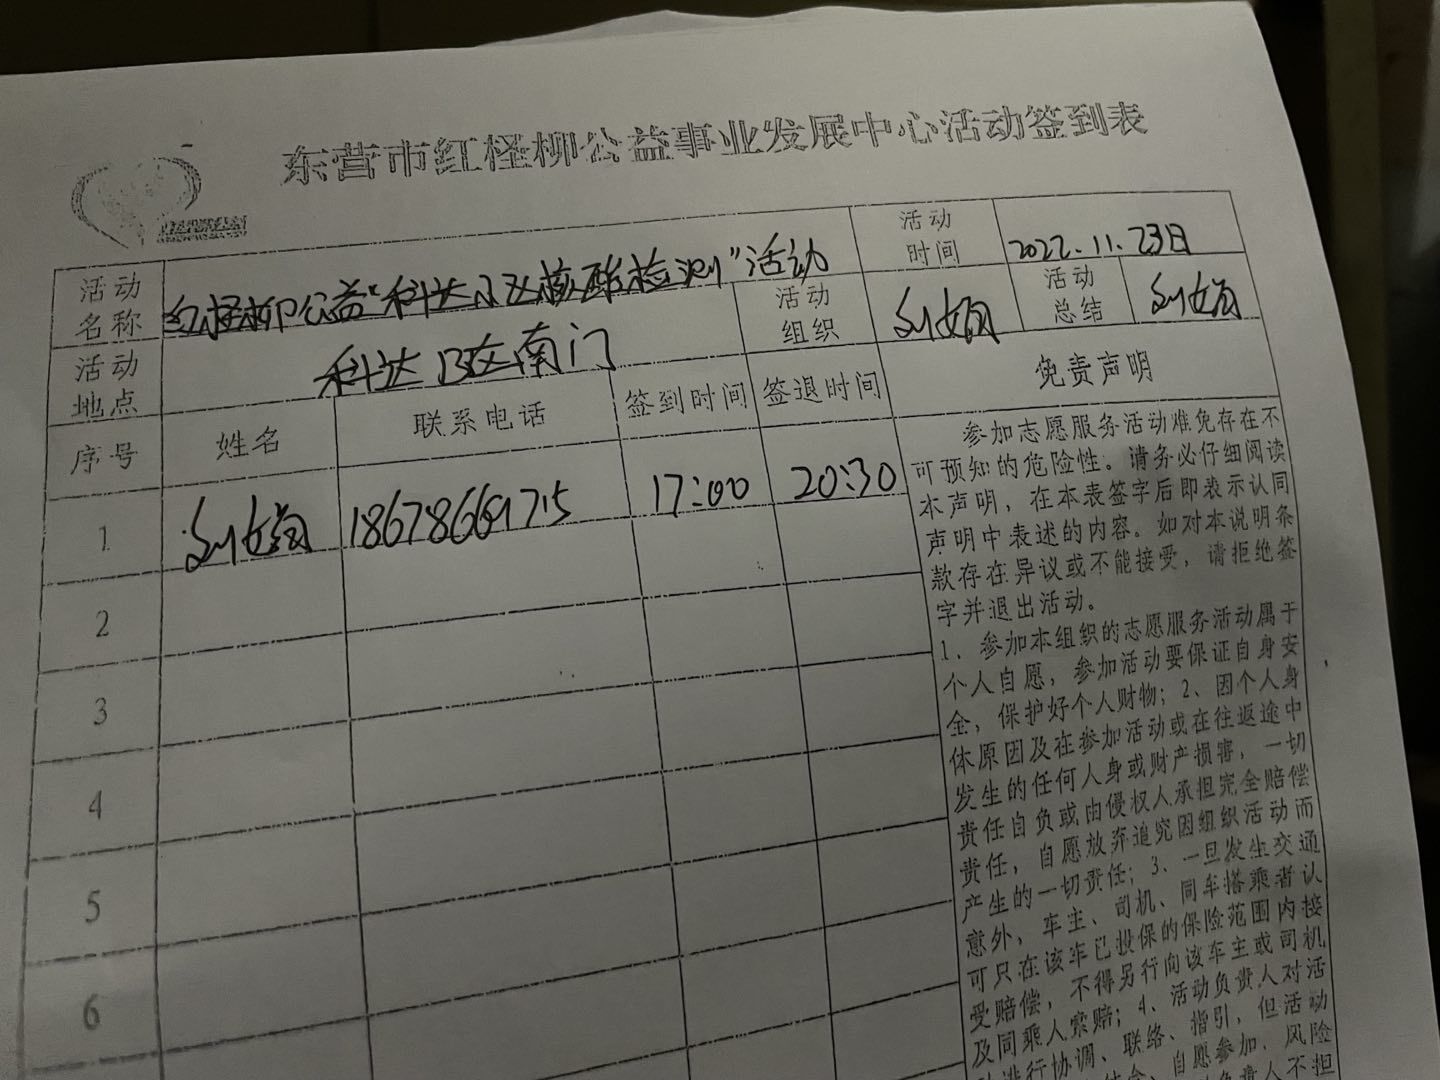 东营市红柽柳公益事业发展中心活动签到表
活动名称
红柽柳公益“科达小区核酸检测”活动
活动时间
2022.11.23日
活动地点
科达B区南门
活动组织
刘娟
活动总结
刘娟
序号 姓名 联系电话 签到时间 签退时间 免责声明
1 刘娟 18678661715 17:00 20:30
2
3
4
5
6
参加志愿服务活动难免存在不
可预知的危险性。请务必仔细阅读
本声明，在本表签字后即表示认同
声明中表述的内容。如对本说明条
款存在异议或不能接受，请拒绝签
字并退出活动。
1、参加本组织的志愿服务活动属于
个人自愿，参加活动要保证自身安
全，保护好个人财物；2、因个人身
体原因及在参加活动或在往返途中
发生的任何人身或财产损害，一切
责任自负或由侵权人承担完全赔偿
责任，自愿放弃追究因组织活动而
产生的一切责任；3、一旦发生交通
意外，车主、司机、同车搭乘者认
可只在该车已投保的保险范围内接
受赔偿，不得另行向该车主或司机
及同乘人索赔；4、活动负责人对活
动进行协调、联络、指引，但活动
自愿参加，风险
负责人不担